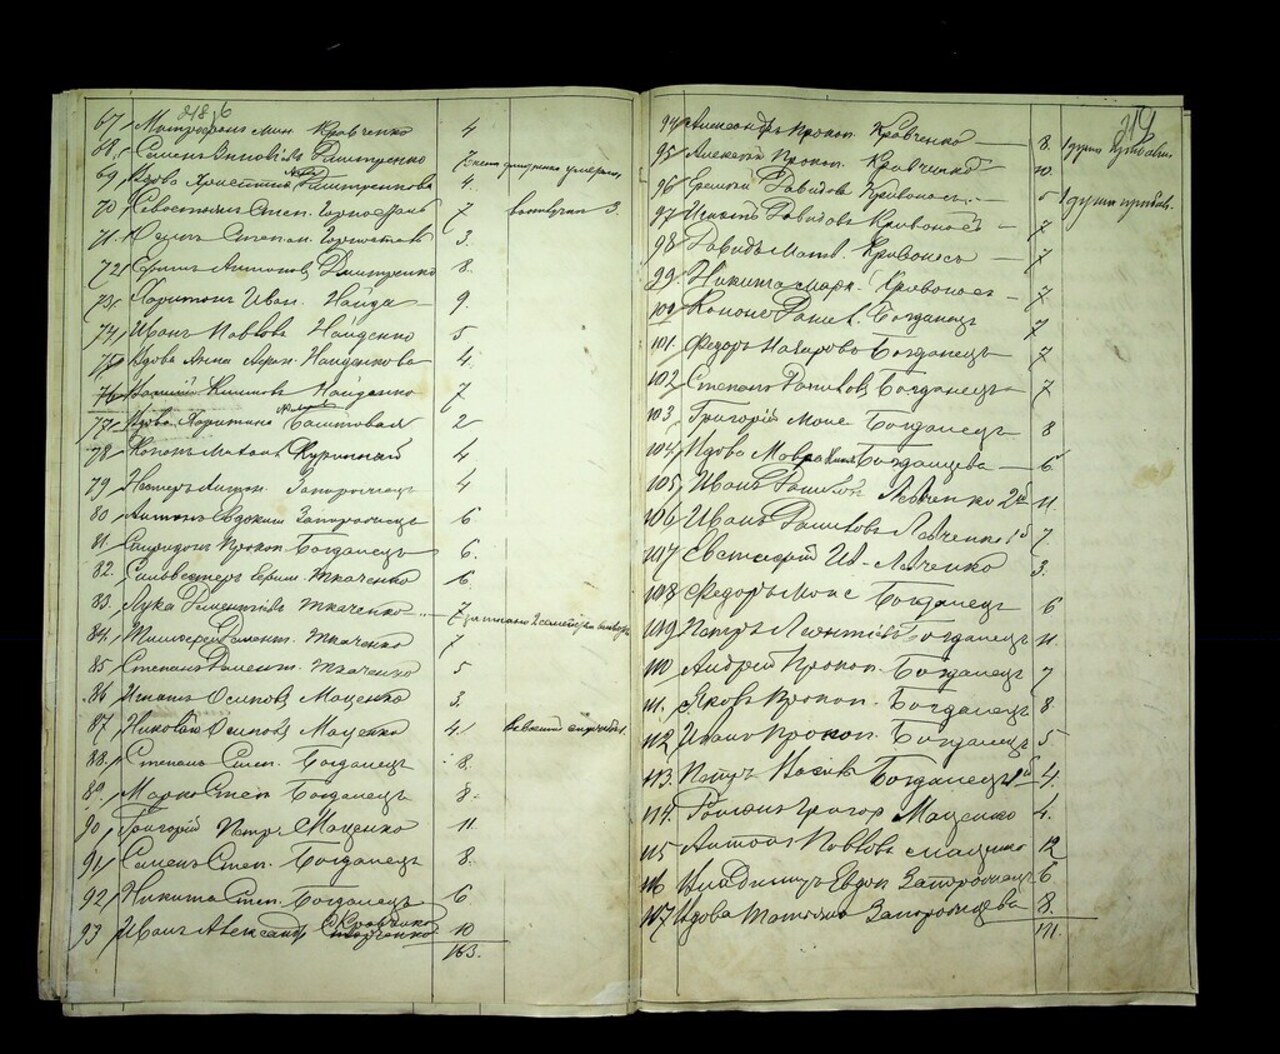 218 б
67 Митрофанъ Мин. Кравченко 4
68 Семенъ Зиновіевъ Дмитренко 7
69 Вдова Христина Дмитренкова 4
70 Севостьянъ Степ. Горностаевъ 7 3.
71. Степан. Горностаевъ 3.
72 Ефимъ Антоновъ Дмитренко 8.
73 Харитонъ Иван. Найда 9.
74 Иванъ Павловъ Найденко 5
75 Вдова Анна Найденкова 4.
76 Климовъ Найденко 7
77 Вдова Харитина Баштовая 2
78 Кононъ 4
79 Нестеръ Антон. Запорожецъ 4
80 Антонъ Евдоким Запорожецъ 6.
81. Спиридонъ Прокоп. Богданецъ 6.
82. Сильвестеръ Ефим. Ткаченко 6.
83. Лука Дементьевъ Ткаченко 7
84. Тимофей Демент. Ткаченко 7
85 Степанъ Демент. Ткаченко 5
86 Игнатъ Осиповъ Маценко 3.
87 Николай Осиповъ Маценко 4.
88. Степанъ Степ. Богданецъ 8.
89. Марко Степ Богданецъ 8.
90 Григорій Петр. Маценко 11.
91 Семенъ Степ. Богданецъ 8.
92 Никита Степ. Богданецъ 6.
93 Иванъ Александр Кравченко 10
163.
219
94 Александръ Прокоп. Кравченко 8. 1 душа
95 Алексей Прокоп. Кравченко 10.
96 Еремей Давидовъ Кривоносъ 5 1 душа прибав.
97 Игнатъ Давидовъ Кривоносъ 7
98 Давидъ Матв. Кривоносъ 7
99. Никита Марк. Кривоносъ 7
100 Кононъ Данил. Богданецъ 7
101. Федоръ Назаровъ Богданецъ 7
102 Степанъ Даниловъ Богданецъ 7
103 Григорій Моис Богданецъ 8
104 Вдова Мавра Богданцева 6
105 Иванъ Левченко 2й 11.
106 Иванъ Даниловъ Левченко 1й 7
107 Евстафій Ив. Левченко 3.
108 Федоръ Моис Богданецъ 6
109 Петръ Леонтіевъ Богданецъ 11.
110 Андрей Прокоп. Богданецъ 7
111. Яковъ Прокоп. Богданецъ 8
112 Иванъ Прокоп. Богданецъ 5.
113. Петръ Богданецъ 1й 4.
114. Романъ Григор Маценко 4.
115 Антонъ Павловъ Маценко 12
116 Владимиръ Евдок Запорожецъ 6
117 Вдова Татьяна Запорожцева 8.
171.